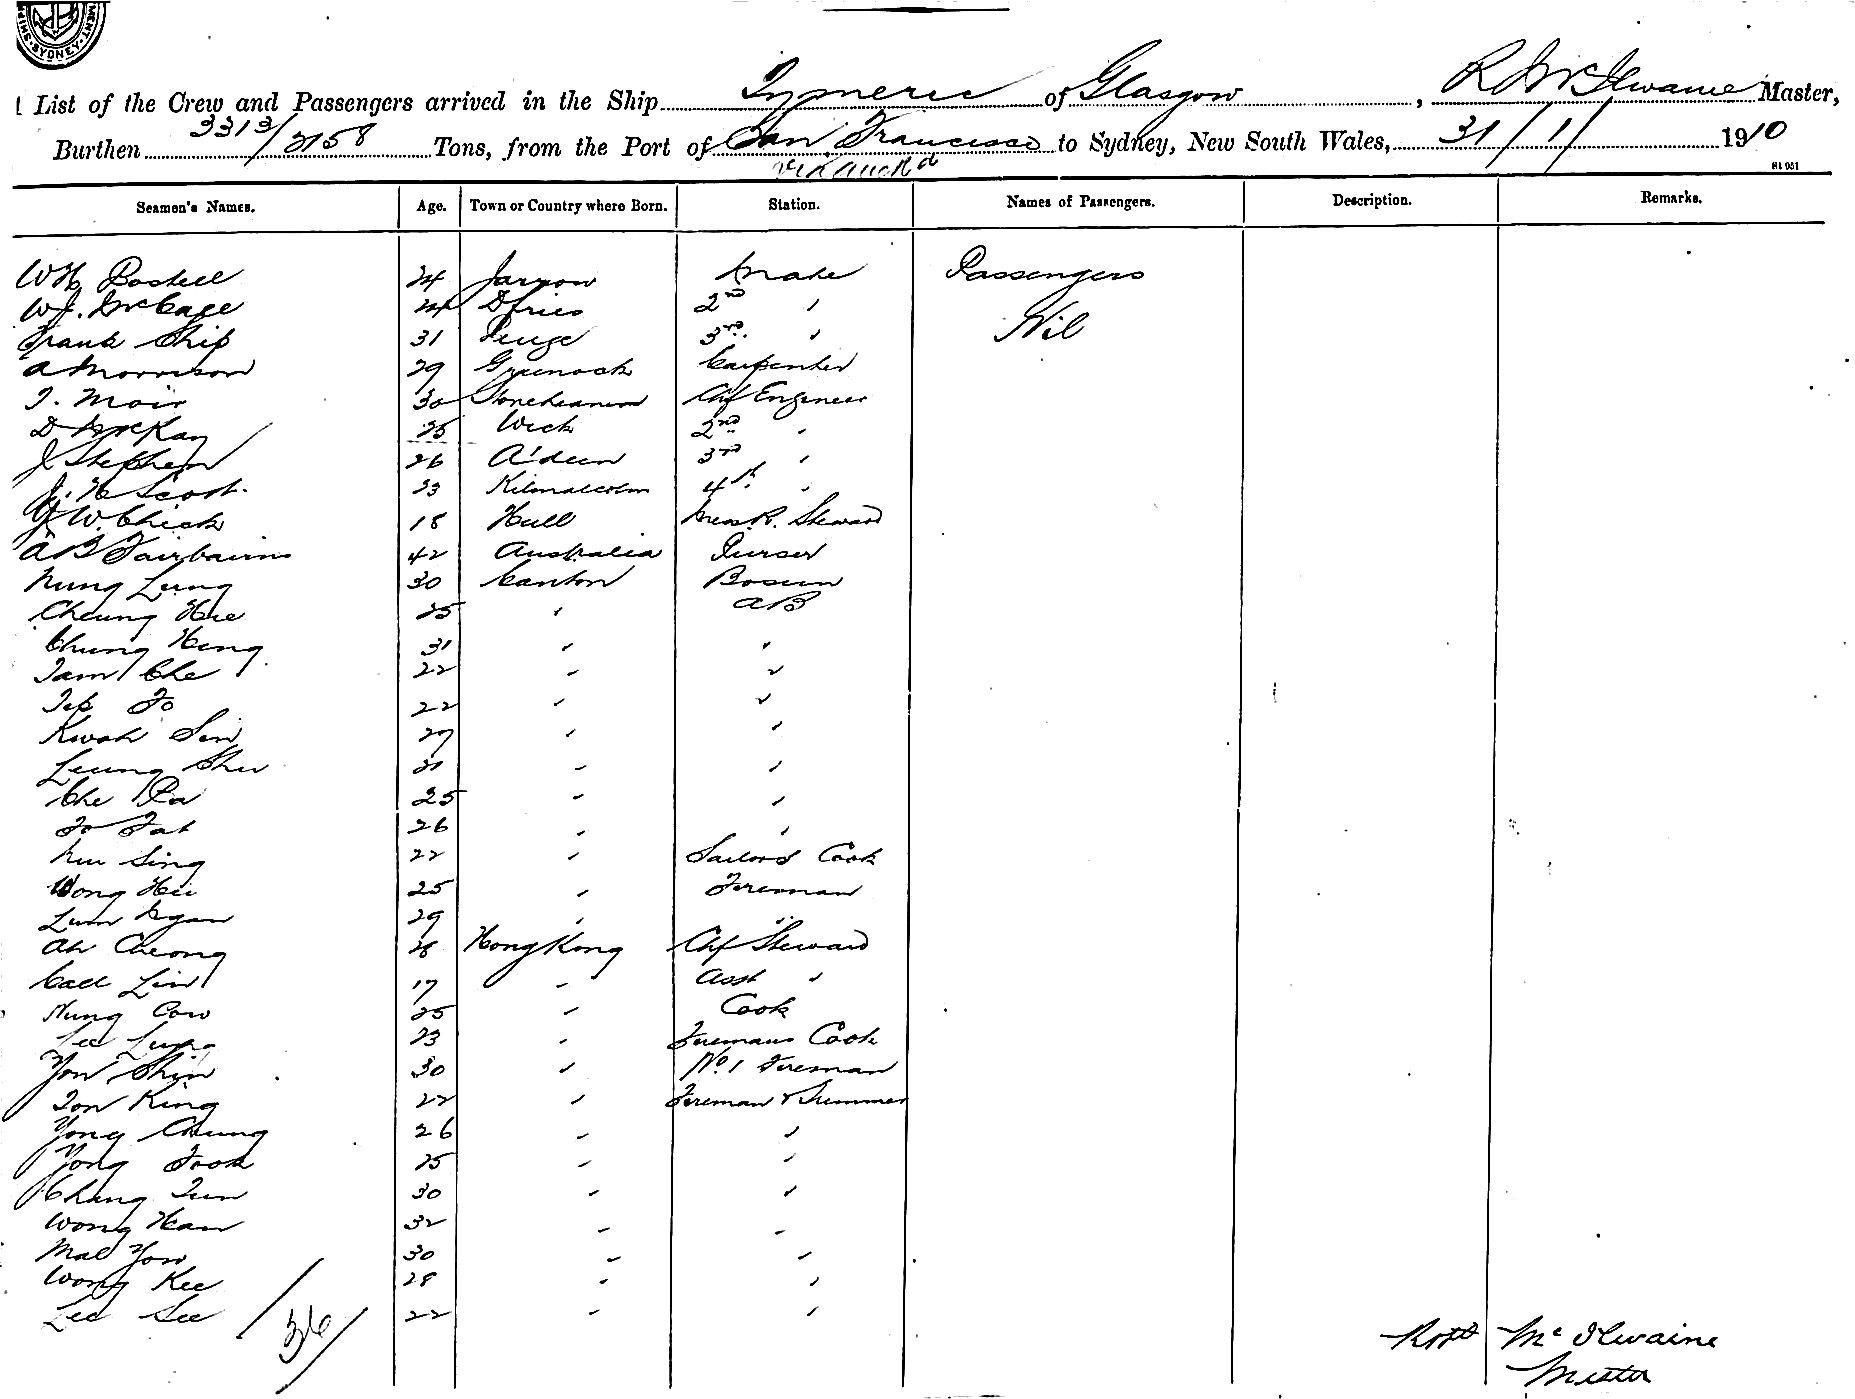 SHIPPING SYDNEY
List of the Crew and Passengers arrived in the Ship Tymeric of Glasgow, R McIlwaine Master,
Burthen 3313/2158 Tons, from the Port of San Francisco to Sydney, New South Wales, 31/1/1910
via Auckd
Seamen's Names. Age. Town or Country where Born. Station. Names of Passengers. Description. Remarks.
24 Jarrow Mate Passengers
W.J. 24 Dfries 2nd " Nil
Frank Ship 31 Penge 3rd. "
A Morrison 29 Greenock Carpenter
J. Moir 30 Stonehaven Chf Engineer
D McKay 25 Wick 2nd "
J Stephen 26 A'deen 3rd "
J. H Scott. 23 Kilmalcolm 4th. "
J W. Chick 18 Hull Mess R. Steward
A B Fairbairn 42 Australia Purser
Nung Leung 30 Canton Bosun
Cheung Hee 25 " AB
Chung Heng 31 " "
Tam Che 22 " "
Yip Fo 22 " "
Kwok Sin 29 " "
Leung Shu 21 " "
Che Pa 25 " "
Fo Fat 26 " "
Sing 22 " Sailors Cook
Wong Hii 25 " Fireman
Lum Ngan 29 " "
Ah Cheong 28 Hong Kong Chf Steward
Lin 17 " Asst "
Nung Cow 25 " Cook
Lee Lung 23 " Firemans Cook
Yow Shin 30 " No. 1 Fireman
Ton King 22 " Fireman & Trimmer
Yong Chung 26 " "
Yong Fook 25 " "
Chang Tun 30 " "
Wong Han 32 " "
Mak Yow 30 " "
Wong Kee 28 " "
Lee See 22 " "
36
Robt McIlwaine
Master